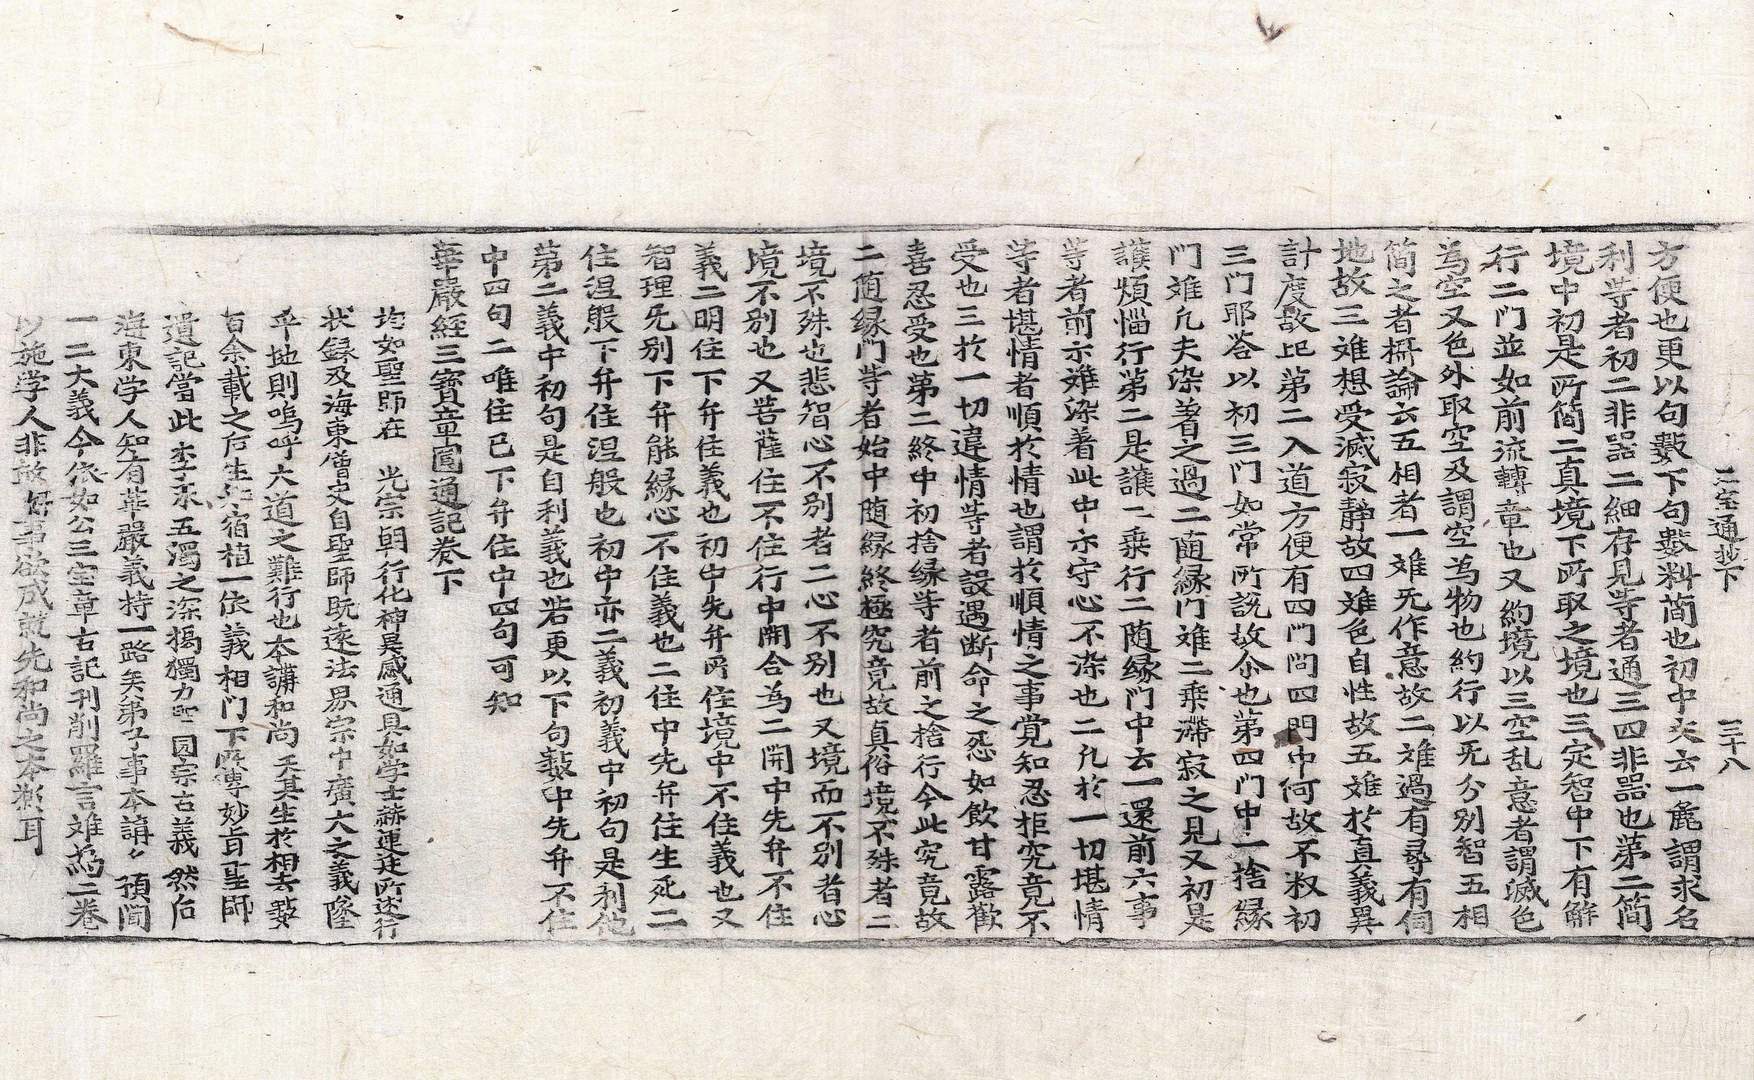 三宝通抄下　三十八
方便也更以句數下句數料簡也初中文云一麁謂求名
利等者初二非器二細存見等者通三四非器也第二簡
境中初是所簡二真境下所取之境也三定智中下有解
行二門並如前流轉章也又約境以三空乱意者謂滅色
為空又色外取空及謂空為物也約行以旡分別智五相
簡之者攝論云五相者一难旡作意故二难過有尋有伺
地故三难想受滅寂静故四难色自性故五难於真義異
計度故已第二入道方便有四門問四門中何故不权初
三門耶荅以初三門如常所說故尒也第四門中一捨縁
門难凡夫染著之過二随縁门难二乗滯寂之見又初是
護煩惱行第二是護二乗行二随縁门中云一還前六事
等者前示难染著此中示守心不染也二凡於一切堪情
等者堪情者順於情也謂於順情之事覚知忍拒究竟不
受也三於一切違情等者設遇断命之惡如飲甘露歡
喜忍受也第二終中初捨縁等者前之捨行今此究竟故
二随縁門等者始中随縁終極究竟故真俗境不殊者二
境不殊也悲智心不別者二心不別也又境而不別者心
境不別也又菩薩住不住行中開合為二開中先弁不住
義二明住下弁住義也初中先弁所住境中不住義也又
智理旡別下弁能縁心不住義也二住中先弁住生死二
住涅般下弁住涅般也初中亦二義初義中初句是利他
第二義中初句是自利義也若更以下句數中先弁不住
中四句二唯住已下弁住中四句可知
華嚴經三寶章圓通記卷下
均如聖師在　光宗朝行化神異感通具如学士赫連廷所述行
状録及海東僧史自聖師旣遠法界宗中廣大之義墜
乎地則嗚呼六道之難行也本講和尚天其生於相去數
百余載之后生知宿植一依義相門下所傳妙旨聖師
遺記當此李末五濁之深獨力 圓宗古義然后
海東学人知有華嚴義持一路矣弟子事本講久預聞
一二大義今依如公三宝章古記刊削羅言难為二卷
以施学人非故好事欲成就先和尚之本願耳